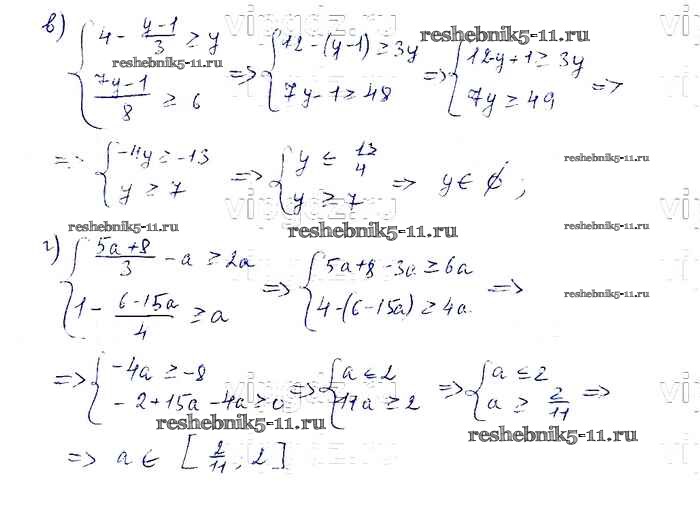 в) { 4 - (y-1)/3 ≥ y ; (7y-1)/8 ≥ 6 => { 12 - (y-1) ≥ 3y ; 7y-1 ≥ 48 => { 12-y+1 ≥ 3y ; 7y ≥ 49 =>
=> { -4y ≥ -13 ; y ≥ 7 => { y ≤ 13/4 ; y ≥ 7 => y ∈ ∅ ;
г) { (5a+8)/3 - a ≥ 2a ; 1 - (6-15a)/4 ≥ a => { 5a+8-3a ≥ 6a ; 4-(6-15a) ≥ 4a =>
=> { -4a ≥ -8 ; -2+15a-4a ≥ 0 => { a ≤ 2 ; 11a ≥ 2 => { a ≤ 2 ; a ≥ 2/11 =>
=> a ∈ [2/11 ; 2]
reshebnik5-11.ru
reshebnik5-11.ru
reshebnik5-11.ru
reshebnik5-11.ru
reshebnik5-11.ru
reshebnik5-11.ru
reshebnik5-11.ru
reshebnik5-11.ru
reshebnik5-11.ru